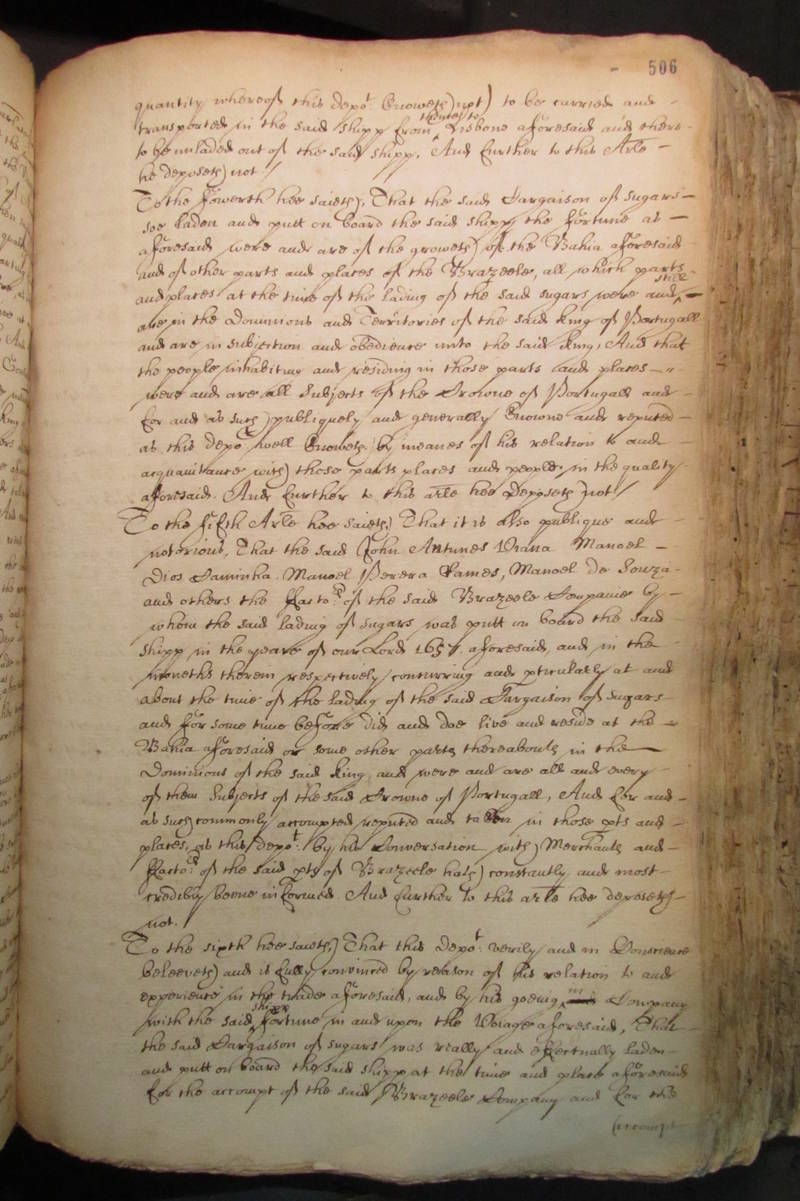 506
quantity whereof this depot. knoweth not) to be carried and
transported in the said shipp from thence to Lisbone aforesaid and there
to be unladed out of the said shipp, And further to this Arle
he deposeth not./
To the fowerth hee saieth, That the said Cargaison of sugars
soe laden and putt on board the said shipp the ffortune as
aforesaid were and are of the groweth of the Bahia aforesaid
and of other parts and places of the Brazeele, all which parts
and places at the time of the lading of the said sugars were and still
are in the Dominions and Territories of the said King of Portugall
and are in subjection and obedience unto the said King, And that
the people inhabiting and residing in those parts and places
were and are all Subjects of the Crowne of Portugall and
for and as such publiquely and generally knowne and reputed
as this depot well knoweth by meanes of his relation to and
acquaintance with those parts places and people, in the quality
aforesaid. And further to this arle hee deposeth not/
To the fifth Arle hee saieth, That it is also publique and
notorious, That the said John Antunes Viana Manoel
Dios Caminha. Manoel Perera Games, Manoel de Souza
and others the ffactors. of the said Brazeele Companie by
whom the said lading of sugars was putt on board the said
shipp in the yeare of our Lord 1657 aforesaid, and in the
moneths therein respectively concurring and pticularly at and
about the time of the lading of the said Cargaison of sugars
and for some time before did and doe live and reside at the
Bahia aforesaid or some other parts thereabouts in the
Dominions of the said King, and were and are all and every
of them Subjects of the said Crowne of Portugall, And for and
as such commonly accompted reputed and taken in those pts and
places, as this depot. by his Conversation with Merchants and
ffactors of the said pts of Brazeele hath constantly and most
credibly beene informed. And further to this arle hee deposeth
not.
To the sixth hee saieth, That this depot. verily and in Conscience
beleeveth and is fully convinced by reason of his relation to and
experience in the trade aforesaid, and by his goeing in Company
with the said shipp ffortune in and upon the Voiage aforesaid, That
the said Cargaison of sugars was really and effectually laden
and putt on board the said shipp at the time and place aforesaid
for the accompt of the said Brazeele Company and for the
accompt